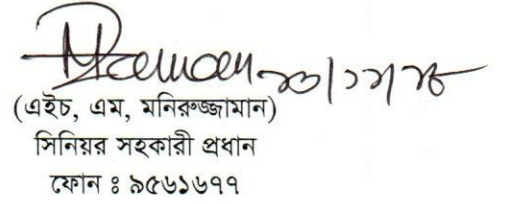 (এইচ, এম, মনিরুজ্জামান)
সিনিয়র সহকারী প্রধান
ফোন ঃ ৯৫৬১৬৭৭